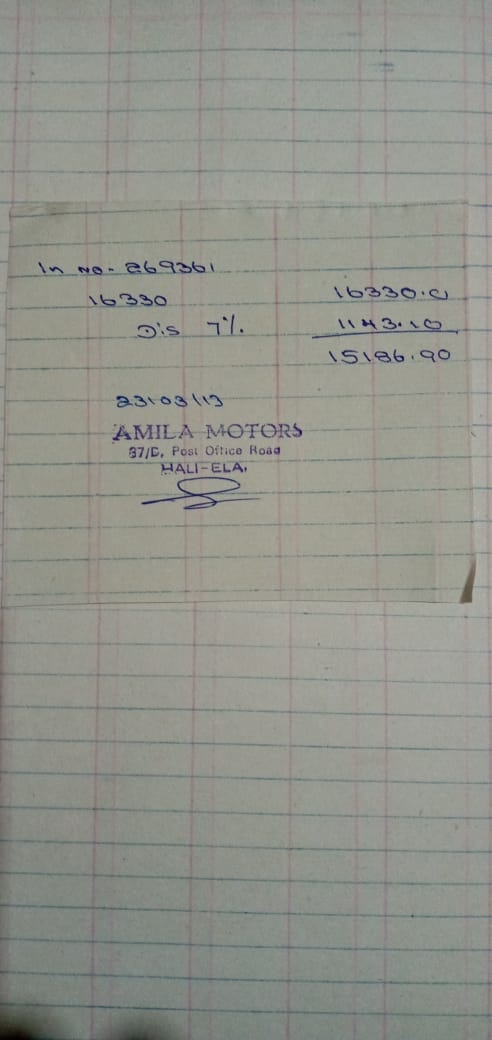 In No- 269361
16330 16330.0
Dis 7% 1143.10
15186.90
23/03/13
AMILA MOTORS
37/D, Post Office Road
HALI-ELA.